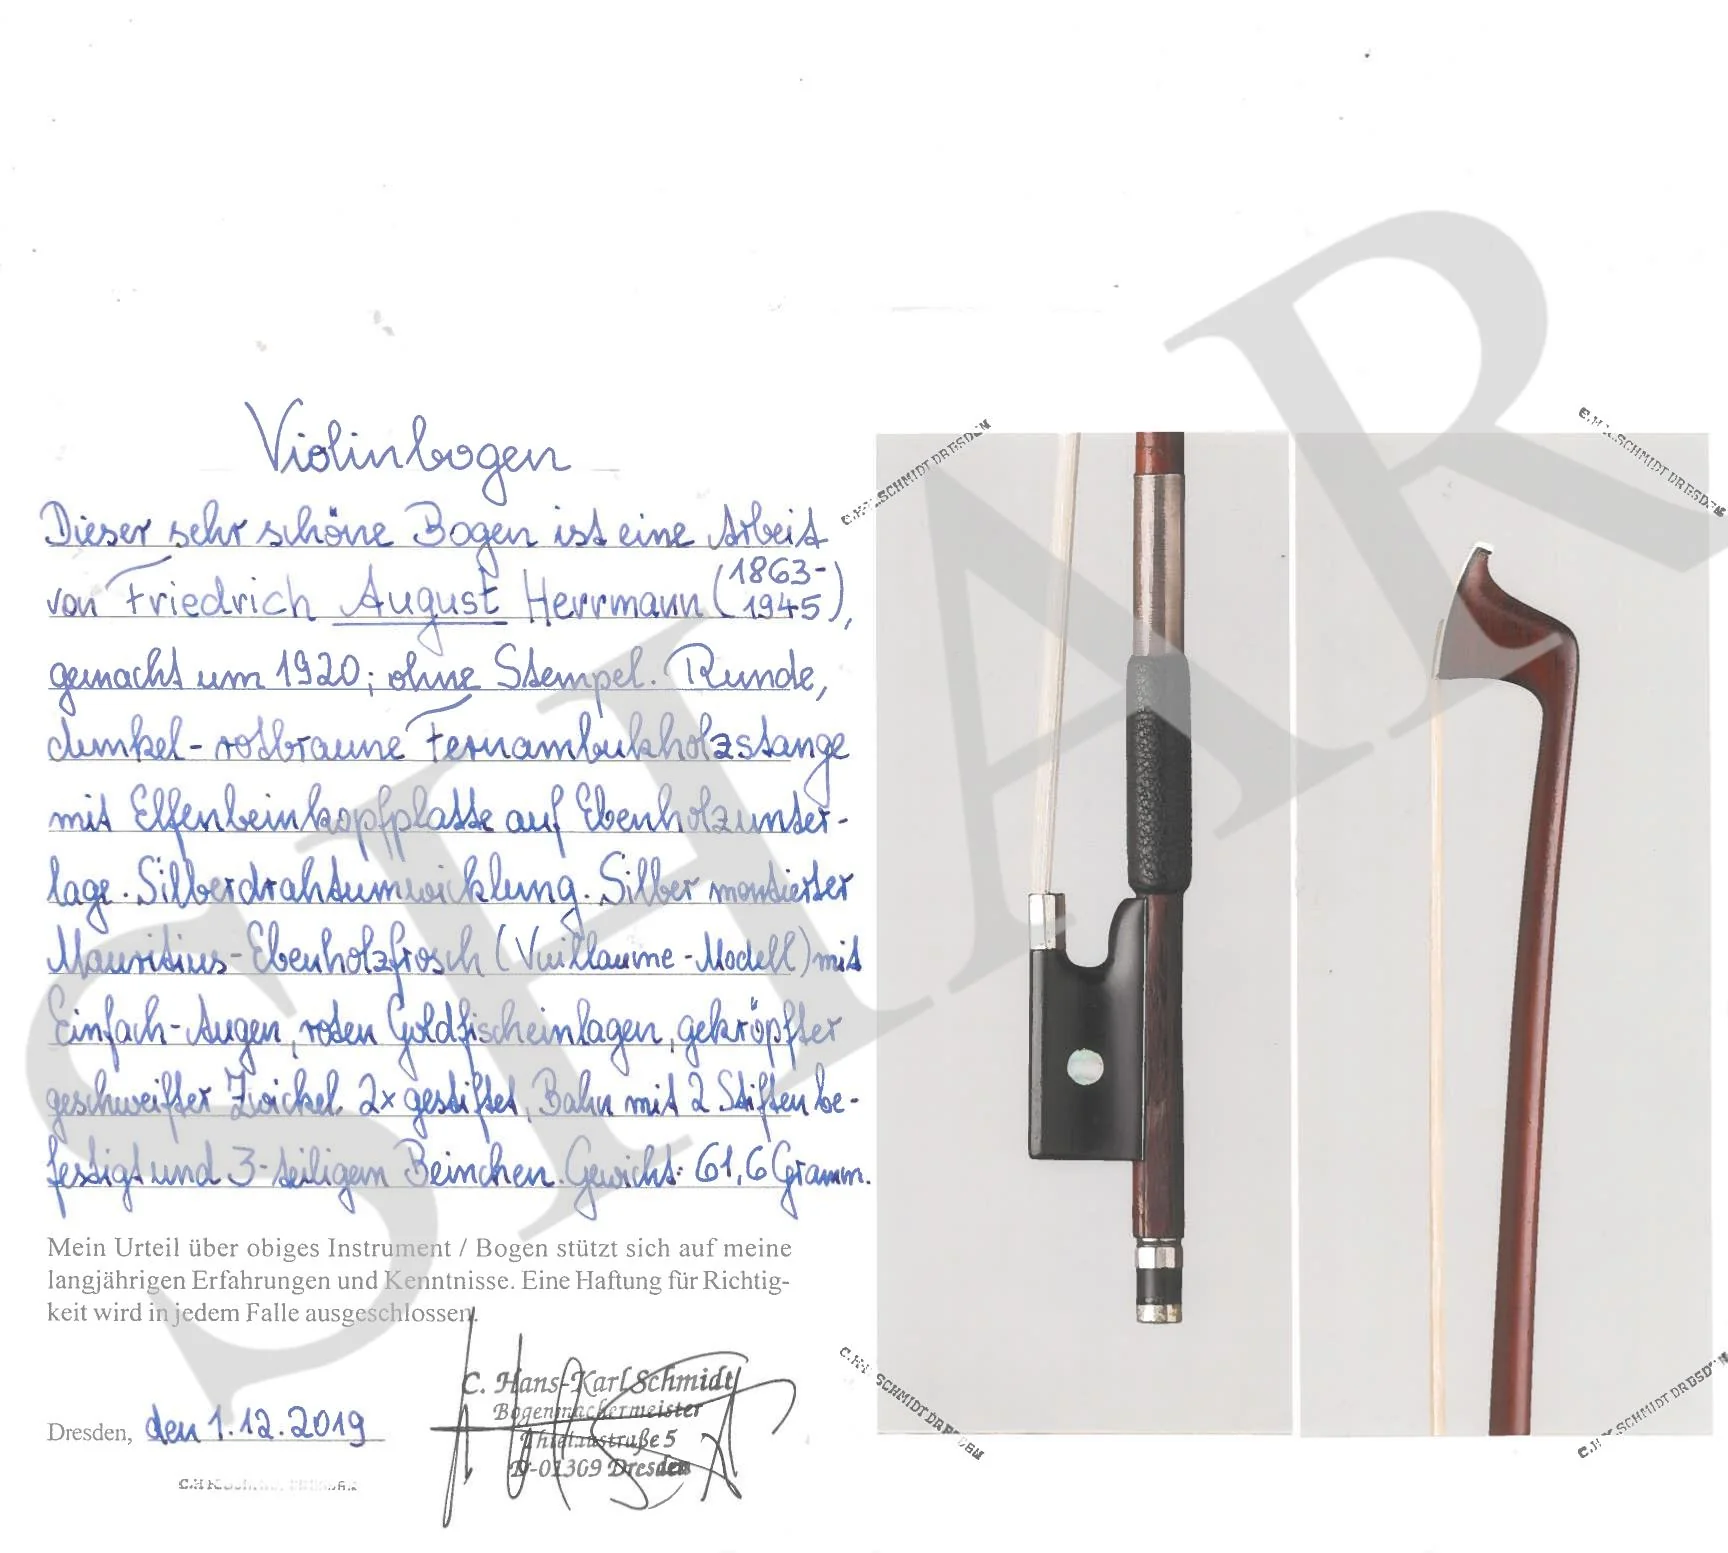 Violinbogen
Dieser sehr schöne Bogen ist eine Arbeit
von Friedrich August Herrmann (1863-
1945),
gemacht um 1920; ohne Stempel. Runde,
dunkel-rotbraune Fernambukholzstange
mit Elfenbeinkopfplatte auf Ebenholzunter-
lage. Silberdrahtumwicklung. Silber montierter
Mauritius-Ebenholzfrosch (Vuillaume-Modell) mit
Einfach-Augen, roten Goldfischeinlagen, gekröpfter
geschweifter Zwickel 2x gestiftet, Bahn mit 2 Stiften be-
festigt und 3-teiligem Beinchen. Gewicht: 61,6 Gramm.
Mein Urteil über obiges Instrument / Bogen stützt sich auf meine
langjährigen Erfahrungen und Kenntnisse. Eine Haftung für Richtig-
keit wird in jedem Falle ausgeschlossen.
C. Hans-Karl Schmidt
Bogenmachermeister
5
D-01309 Dresden
Dresden, den 1.12.2019
C.H.K.SCHMIDT DRESDEN
C.H.K.SCHMIDT DRESDEN
C.H.K.SCHMIDT DRESDEN
C.H.K.SCHMIDT DRESDEN
SHAR